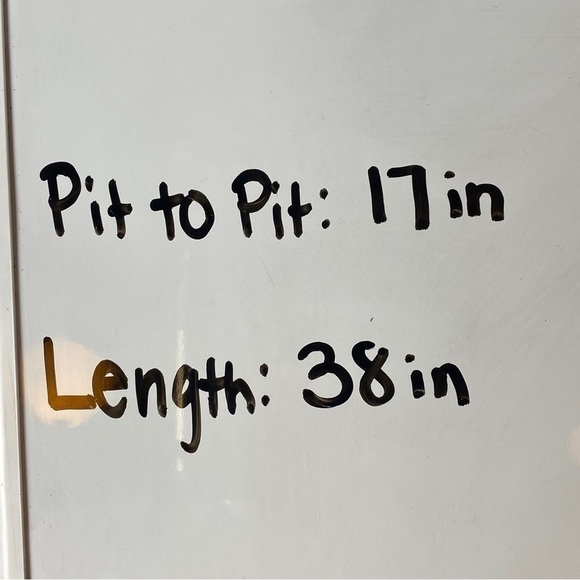 Pit to Pit: 17in
Length: 38in